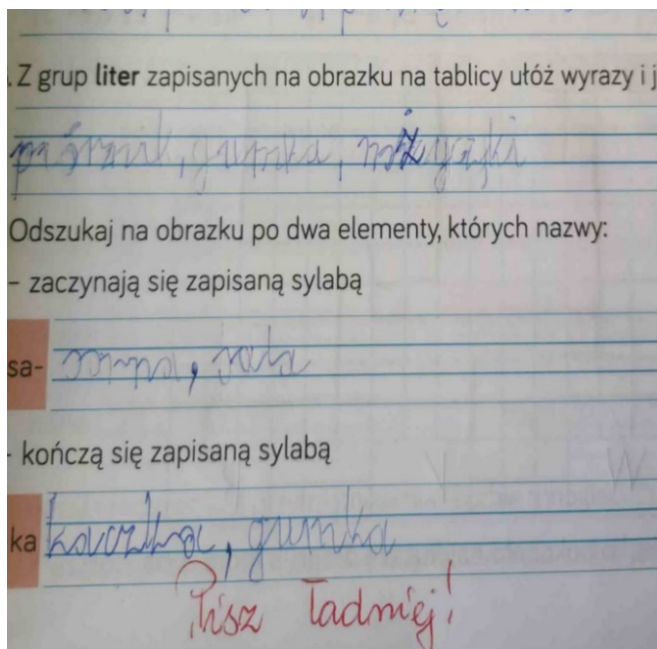 . Z grup liter zapisanych na obrazku na tablicy ułóż wyrazy i j
piórnik, gumka, nożyczki
Odszukaj na obrazku po dwa elementy, których nazwy:
– zaczynają się zapisaną sylabą
sa- sarna, sala
- kończą się zapisaną sylabą
ka kaczka, gumka
Pisz ładniej!